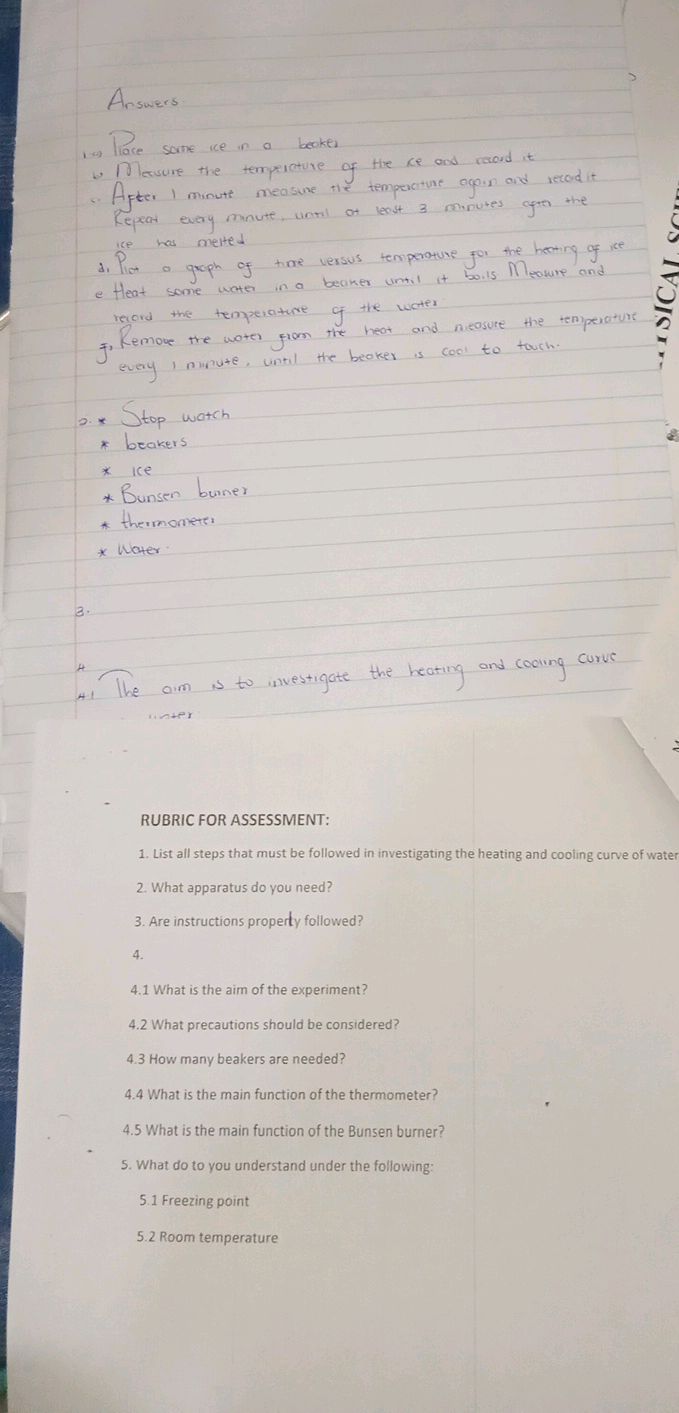 Answers
1 a) Place some ice in a beaker
b. Measure the temperature of the ice and record it
c. After 1 minute measure the temperature again and record it
Repeat every minute, until at least 3 minutes after the
ice has melted
d. Plot a graph of time versus temperature for the heating of ice
e Heat some water in a beaker until it boils Measure and
record the temperature of the water
f. Remove the water from the heat and measure the temperature
every 1 minute, until the beaker is cool to touch.
2. * Stop watch
* beakers
* ice
* Bunsen burner
* thermometer
* Water.
3.
4
4.1 The aim is to investigate the heating and cooling curve
water
RUBRIC FOR ASSESSMENT:
1. List all steps that must be followed in investigating the heating and cooling curve of water
2. What apparatus do you need?
3. Are instructions properly followed?
4.
4.1 What is the aim of the experiment?
4.2 What precautions should be considered?
4.3 How many beakers are needed?
4.4 What is the main function of the thermometer?
4.5 What is the main function of the Bunsen burner?
5. What do to you understand under the following:
5.1 Freezing point
5.2 Room temperature